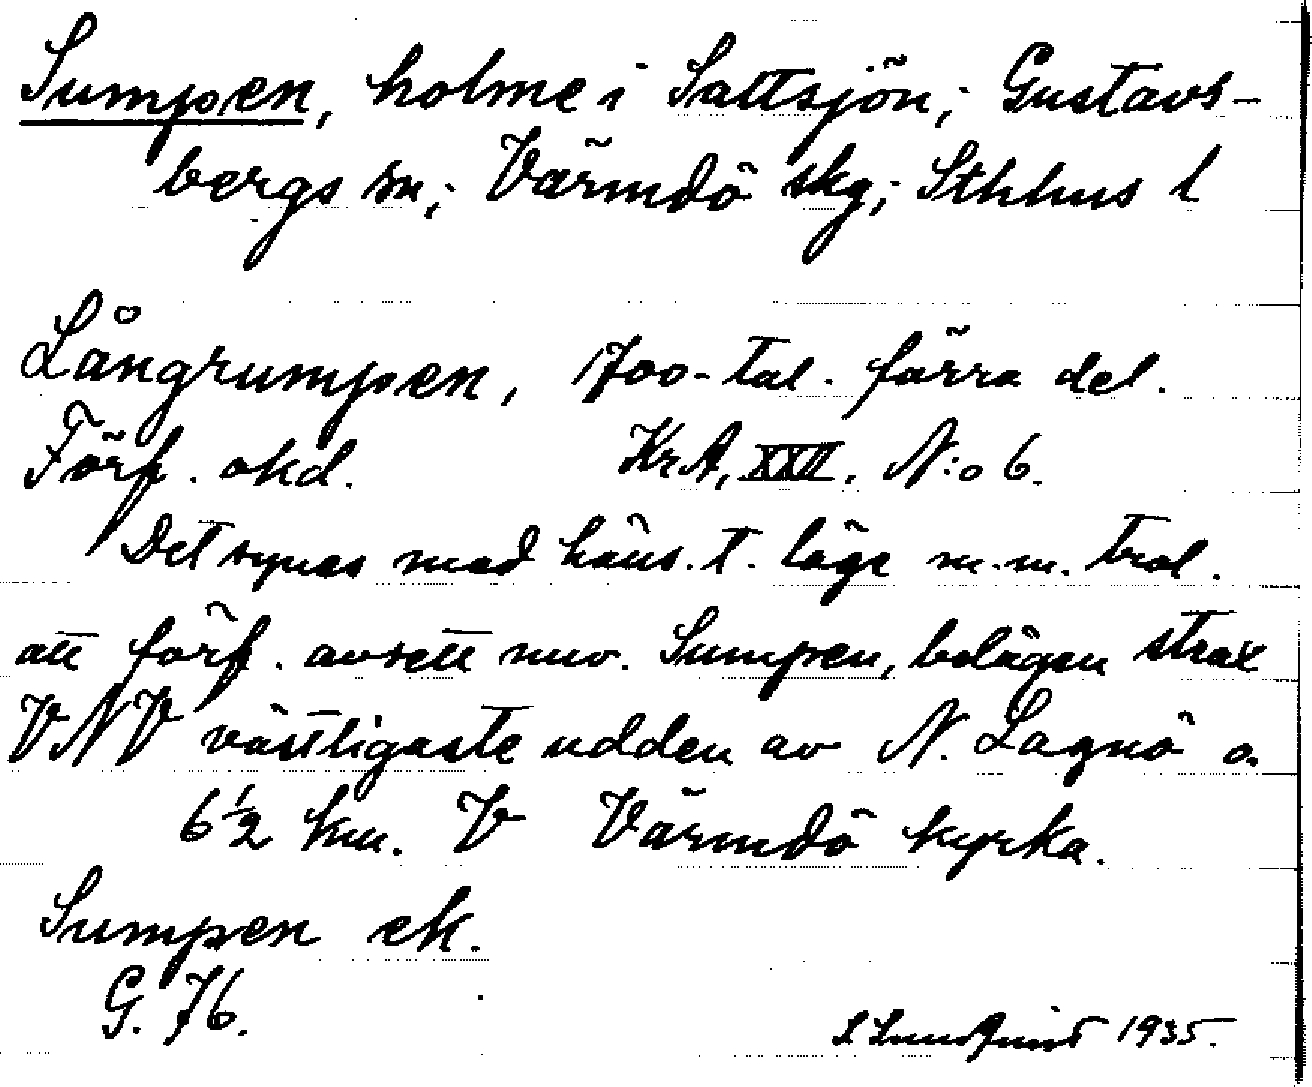 Sumpen, holme i Saltsjön; Gustavs-
bergs sn; Värmdö skg; Sthlms l
Långrumpen, 1700-tal. förra del.
Förf. okd. KrA, XXII, N:o 6.
Det synes med häns. t. läge m.m. trol.
att förf. avsett nuv. Sumpen, belägen strax
VNV västligaste udden av N. Lagnö o.
6 1/2 km. V Värmdö kyrka.
Sumpen ek.
G. 76.
1935.